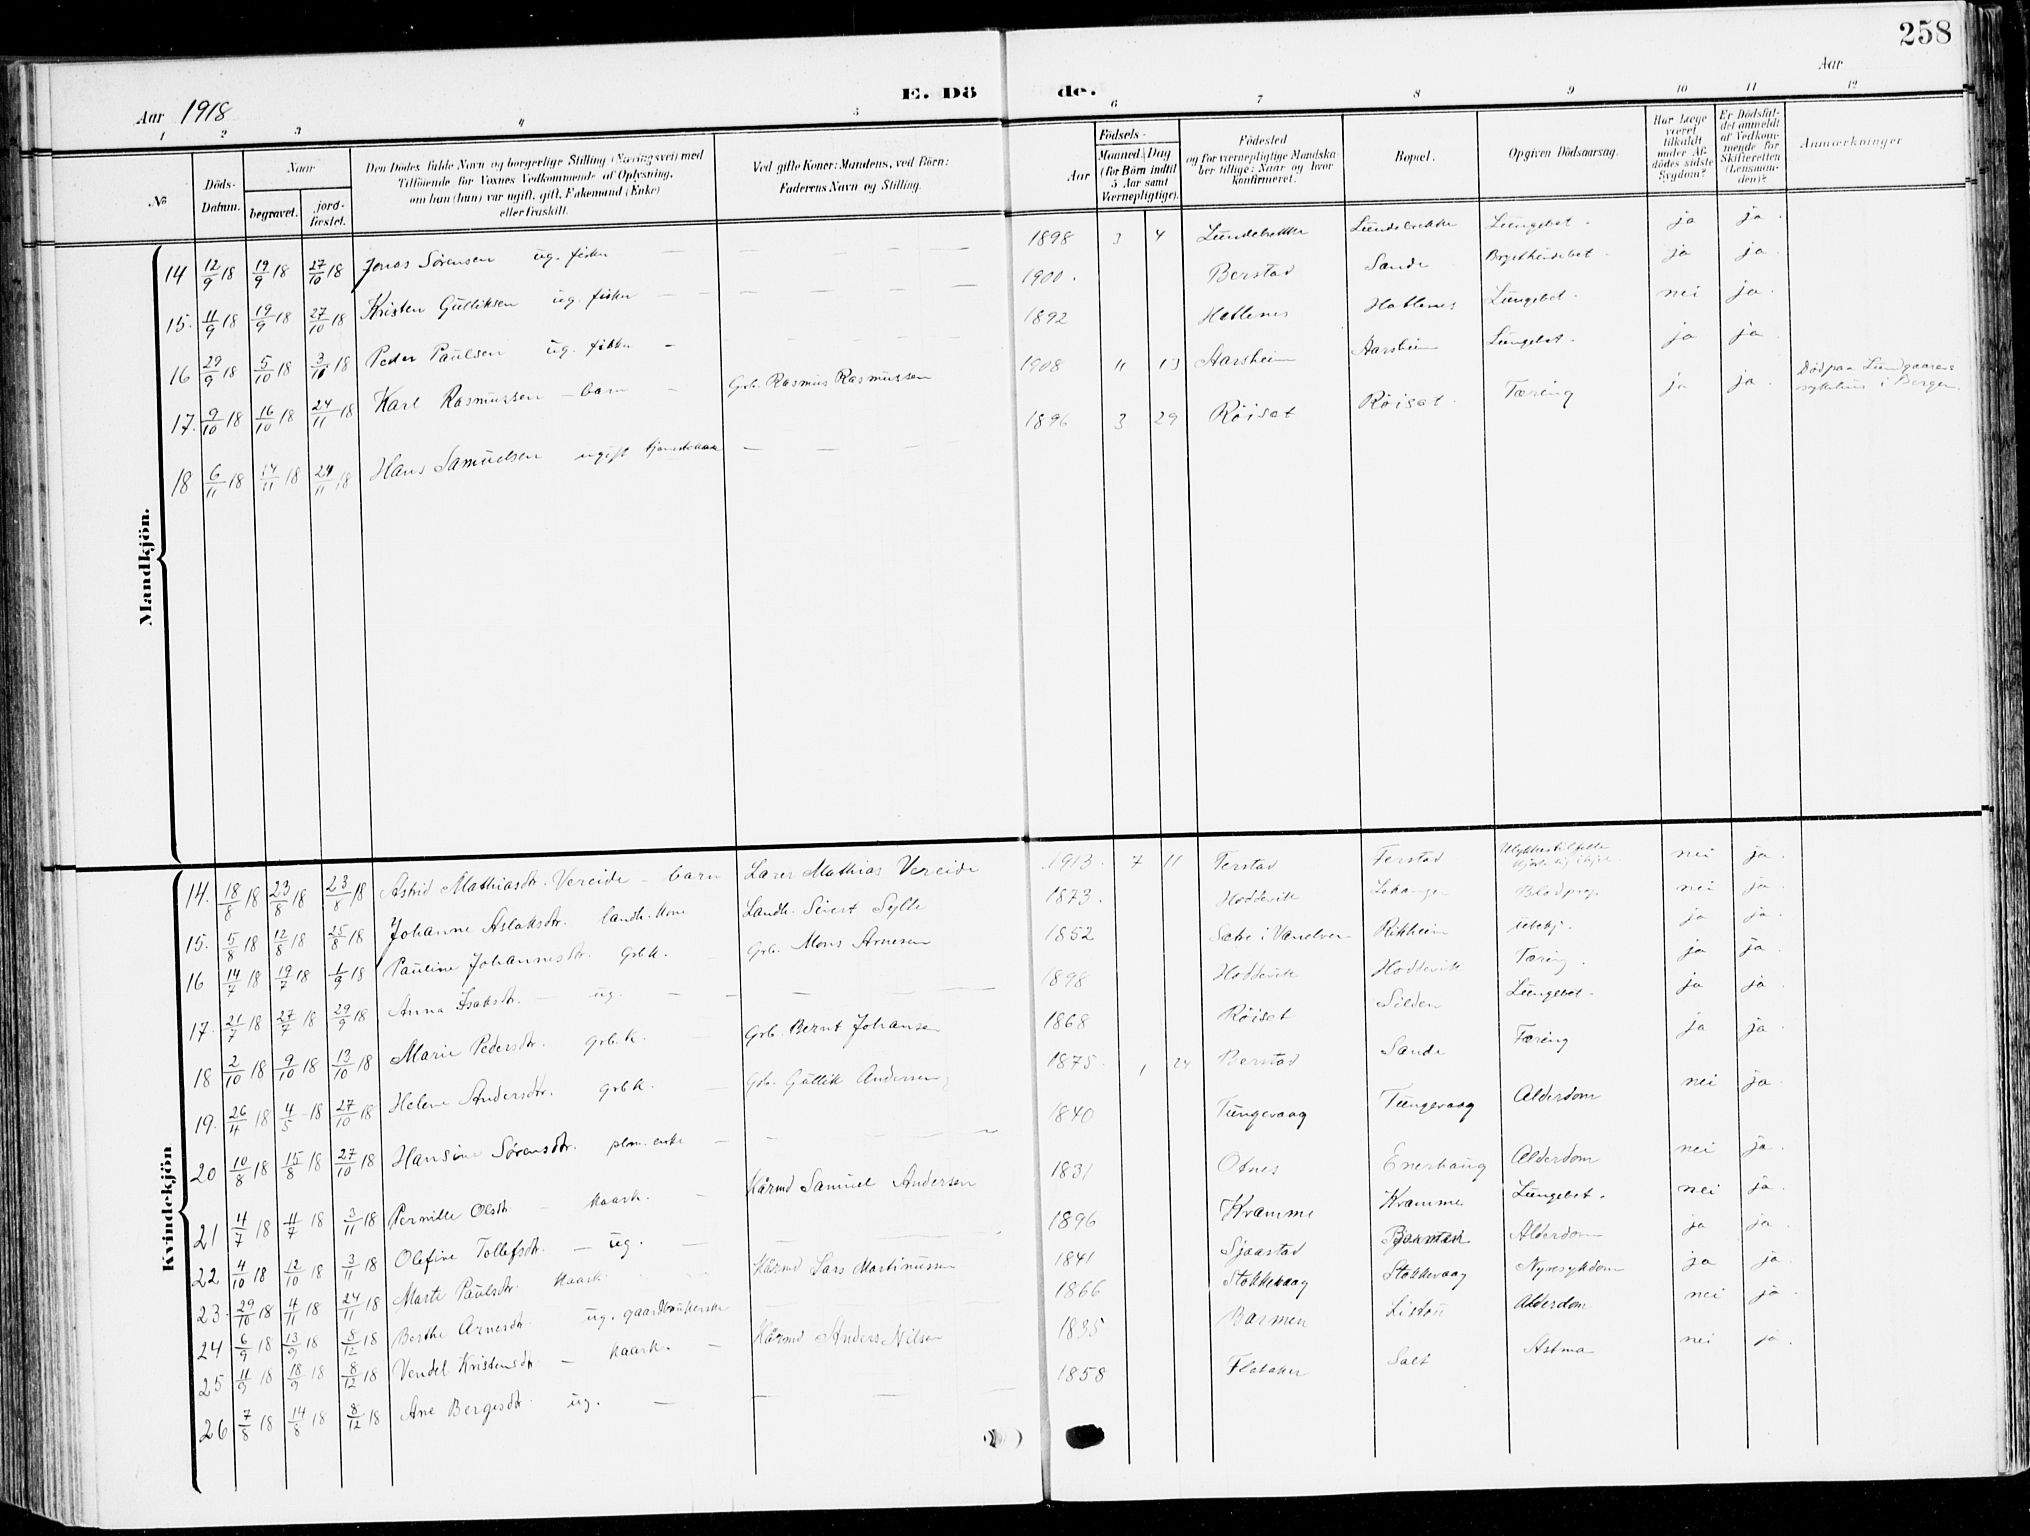 258
Aar 1918
E. Dö de.
Aar
1 2 3 4 5 6 7 8 9 10 11 12
No
Döds-Datum.
Naar
begravet.
jord-fæstet.
Den Dödes fulde Navn og borgerlige Stilling (Næringsvei) med
Tilföiende for Voxnes Vedkommende af Oplysning,
om han (hun) var ugift, gift, Enkemand (Enke)
eller fraskilt.
Ved gifte Koner: Mandens, ved Börn:
Faderens Navn og Stilling.
Födsels-
Aar
Maaned. Dag
(for Börn indtil
5 Aar samt
Værnepligtige).
Födested
og for værnepligtige Mandska-
ber tillige: Naar og hvor
konfirmeret.
Bopæl.
Opgiven Dödsaarsag.
Har Læge
været
tilkaldt
under Af-
dödes sidste
Sygdom?
Er Dödsfal-
det anmeldt
af Vedkom-
mende for
Skifteretten
(Lensman-
den)?
Anmærkninger
Mandkjön.
14 12/9 18 19/9 18 27/10 18 Jonas Sørensen ug. fisker — — — — 1898 3 4 Lundebrekke Lundebrekke Lungebet. ja ja.
15. 11/9 18 19/9 18 27/10 18 Kristen Gulliksen ug. fisker — — — — 1900. Berstad Sande Brysthindebet. ja ja.
16 29/9 18 5/10 18 3/11 18 Peder Paulsen ug. fisker — — — — 1892 Hatlenes Hatlenes Lungebet. nei ja.
17. 9/10 18 16/10 18 24/11 18 Karl Rasmussen — barn — Grb. Rasmus Rasmussen 1908 11 13 Aarsheim Aarsheim Lungebet. ja ja.
18 6/11 18 14/11 18 24/11 18 Hans Samuelsen ugift — — — 1896 3 29 Röiset Röiset. Tæring ja ja. Död paa Lungaarens
sykehus i Bergen.
Kvindekjön
14. 18/8 18 23/8 18 23/8 18 Astrid Mathiasdtr. Vereide — barn Lærer Mathias Vereide 1913. 7 11 Ferstad Ferstad Ulykkestilfelle nei ja.
15. 5/8 18 12/8 18 25/8 18 Johanne Aslaksdtr. landh. kone Landh. Sivert Sylte 1873. Hoddevik Blodprop nei ja.
16 14/7 18 19/7 18 1/9 18 Pauline Johannesdtr. Grbk. — Grb. Mons Arnesen 1852 Sætre i Vanelven Rikheim ubekj. ja ja.
17. 21/7 18 27/7 18 29/9 18 Anna Isaksdtr. — ug. — — — — — 1898 Hoddevik Hoddevik Tæring. ja ja.
18 2/10 18 9/10 18 13/10 18 Marie Pedersdtr. grb.k. — Grb. Bernt Johansen 1868 Röiset Silden Lungebet. ja ja.
19. 26/4 18 4/5 18 27/10 18 Helene Andersdtr. grbk. — Grb. Gullik Andersen 1875. 1 24 Berstad Sande Tæring ja ja.
20 10/8 18 15/8 18 27/10 18 Hansine Sørensdtr. plm. enke — — — — — 1840 Tungevaag Tungevaag Alderdom nei ja.
21 4/7 18 11/7 18 3/11 18 Pernille Olsdtr. — kaark. — Kårmd Samuel Andersen 1831 Otnes Enerhaug Alderdom nei ja.
22 4/10 18 12/10 18 3/11 18 Olefine Tollefsdtr. — ug. — — — — 1896 Kramme Kramme Lungebet. nei ja.
23. 29/10 18 4/11 18 24/11 18 Marte Paulsdtr. kaark. Kårmd Lars Martinussen 1841 Sjaastad Alderdom ja ja.
24 6/9 18 13/9 18 8/12 18 Berthe Arnesdtr. ug. gaardbrukerske — 1866 Stokkevaag Stokkevaag Nyresykdom ja ja
25 11/9 18 18/9 18 8/12 18 Vendel Kristensdtr. — kaark. — Kårmd Anders Nilsen 1835 Barmen Listau Alderdom nei ja
26 7/8 18 14/8 18 8/12 18 Ane Bergesdtr. ug. — — — — 1858 Flataker Salt Astma nei ja.